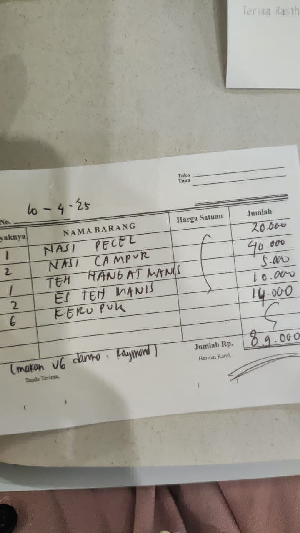 Terima Kasih
Tuan
Toko
No. 10 - 4 - '25
yaknya NAMA BARANG Harga Satuan Jumlah
1 NASI PECEL 20.000
2 NASI CAMPUR 40.000
1 TEH HANGAT MANIS 5.000
2 ES TEH MANIS 10.000
6 KERUPUK 14.000
Jumlah Rp. 89.000
(makan
Raymond)
Tanda Terima,
Hormat Kami,